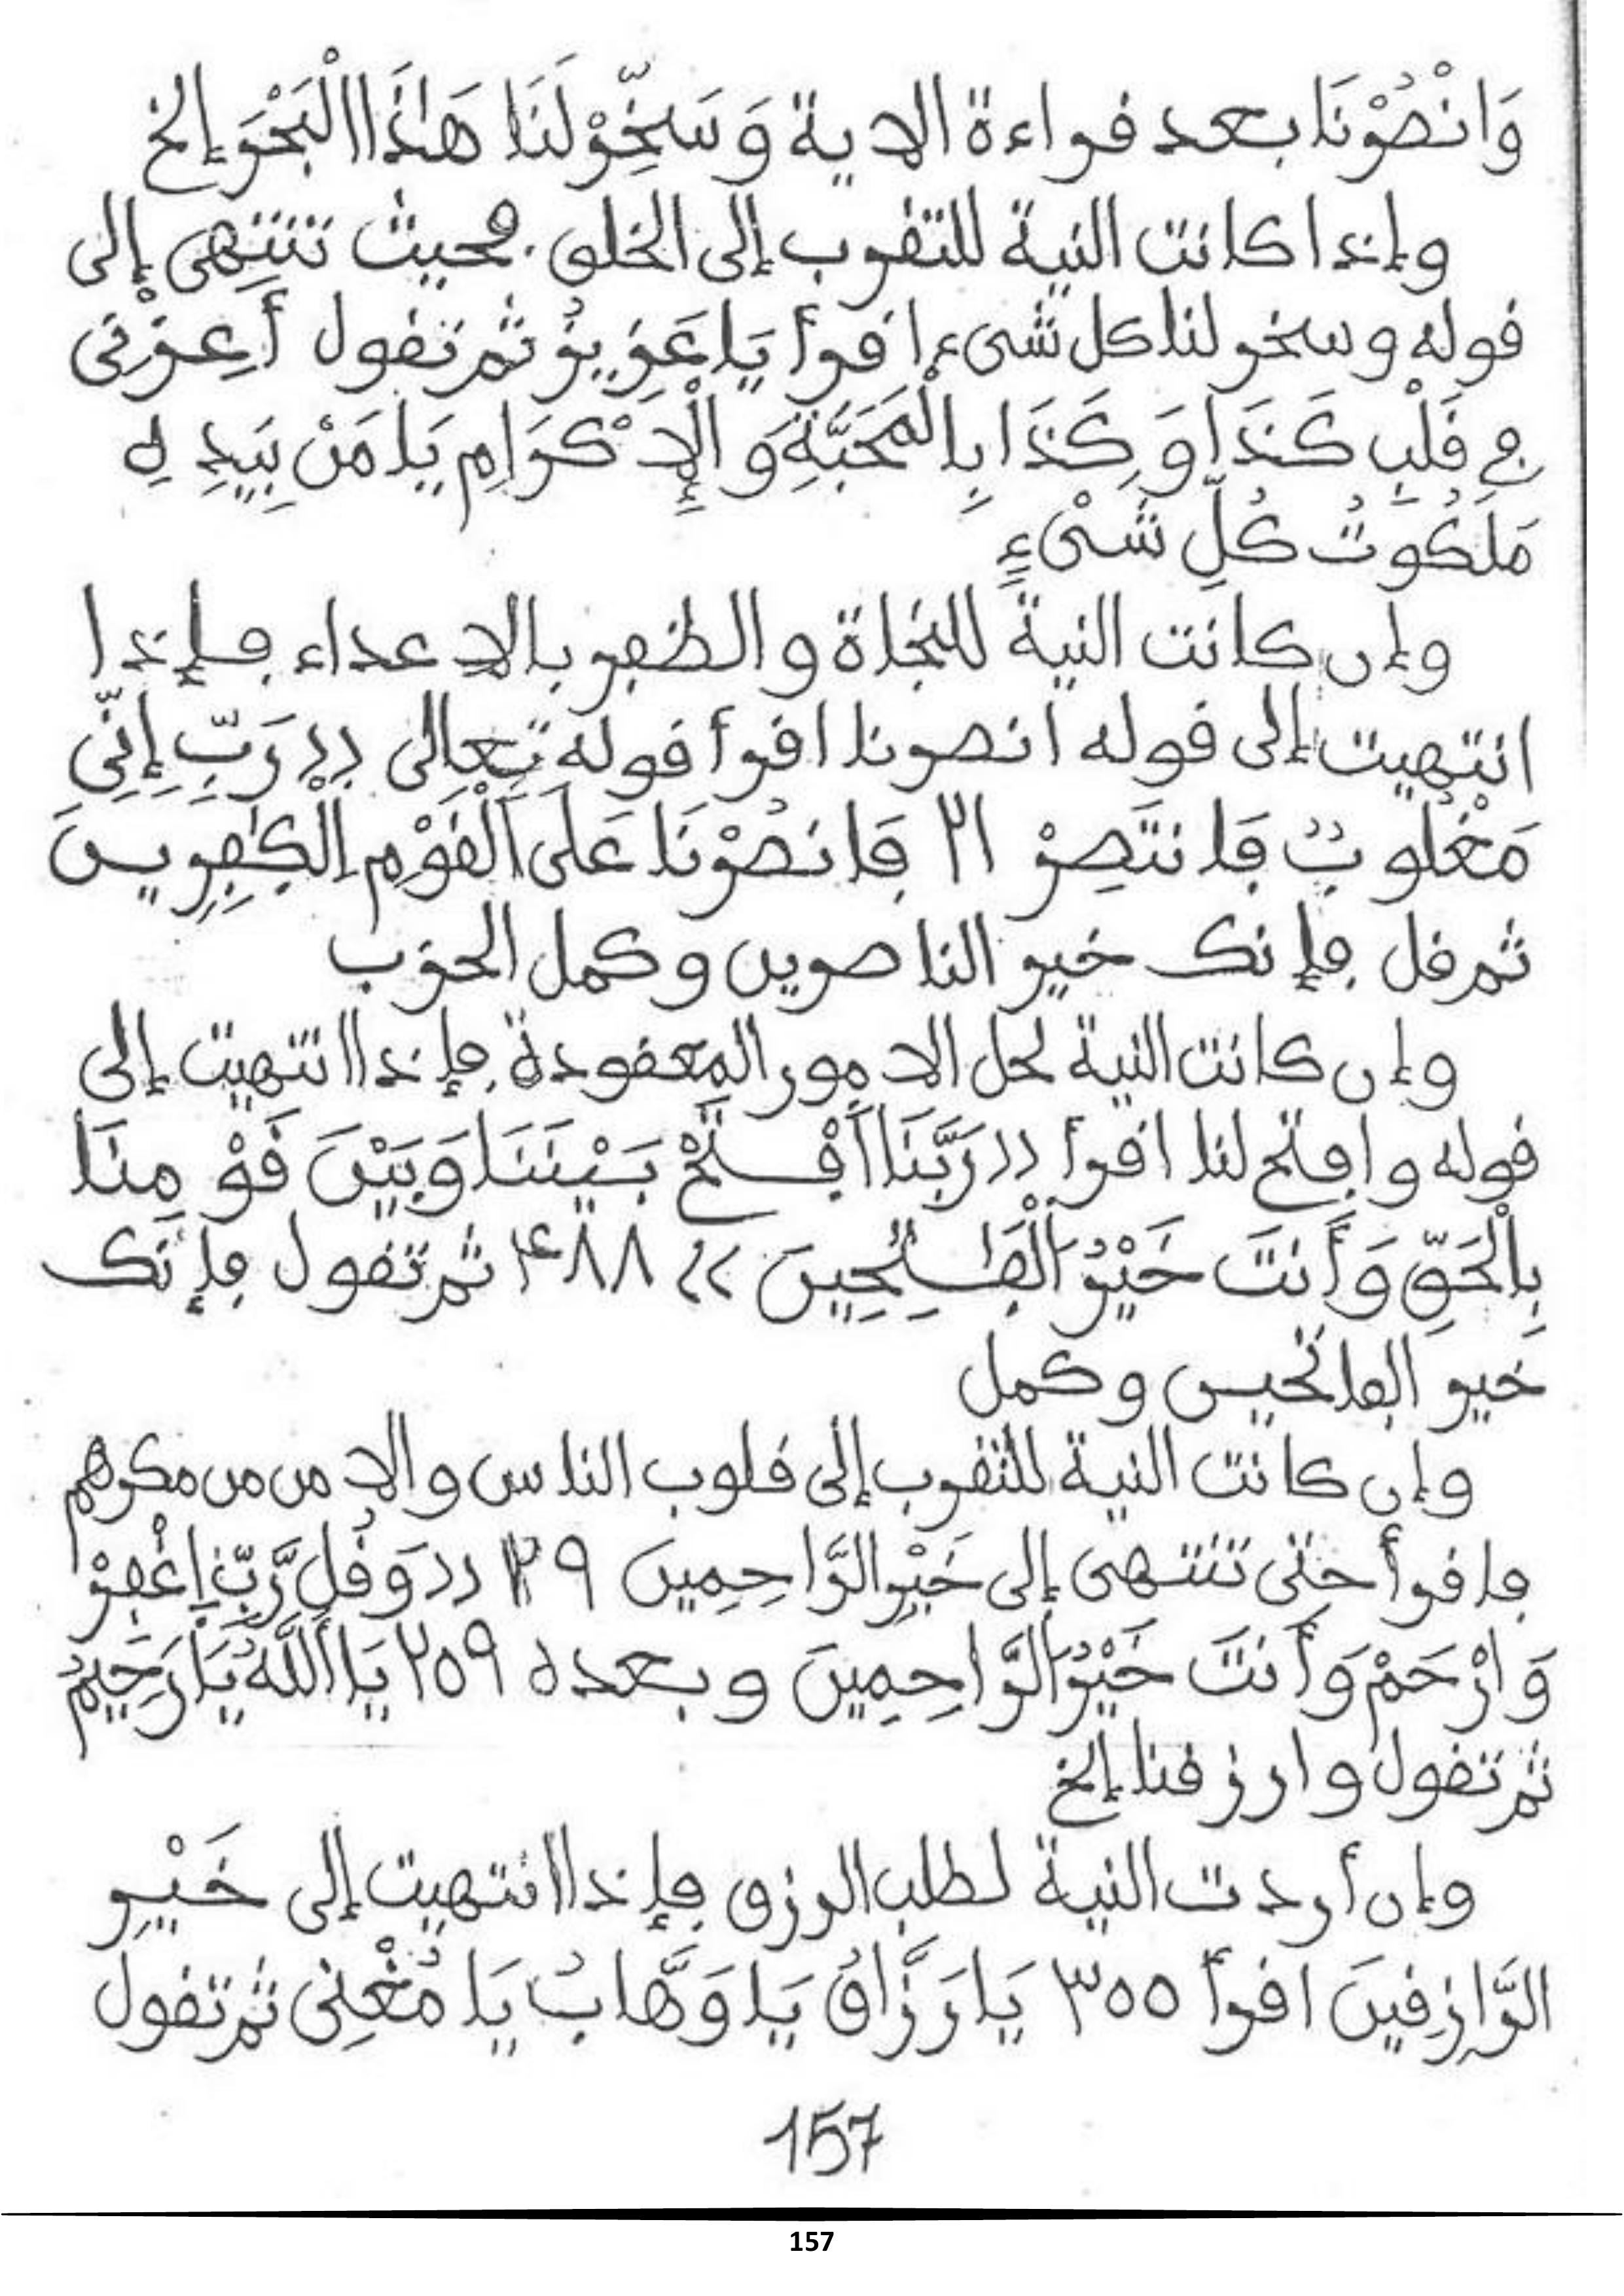 وَانْصُرْنَا بعد قراءة الاية وَسَخِّرْ لَنَا هَذَا الْبَحْرَ إلخ
وإذا كانت النية للتقرب إلى الخلق فحيث تنتهى إلى
قوله وسخر لنا كل شىء اقرأ يَا عَزِيزُ ثم تقول أَعِزْنِى
فِى قَلْبِ كَذَا وَكَذَا بِالْمَحَبَّةِ وَالْإِكْرَامِ يَا مَنْ بِيَدِهِ
مَلَكُوتُ كُلِّ شَىْءٍ
وإن كانت النية للنجاة والظفر بالاعداء فإذا
انتهيت إلى قوله انصرنا اقرأ قوله تعالى (( رَبِّ إِنِّى
مَغْلُوبٌ فَانتَصِرْ ٢١ فَانصُرْنَا عَلَى الْقَوْمِ الْكَٰفِرِينَ
ثم قل فإنك خير الناصرين وكمل الحزب
وإن كانت النية لحل الامور المعقودة فإذا انتهيت إلى
قوله وافتح لنا اقرأ (( رَبَّنَا افْتَحْ بَيْنَنَا وَبَيْنَ قَوْمِنَا
بِالْحَقِّ وَأَنتَ خَيْرُ الْفَٰتِحِينَ )) ٤٨٨ ثم تقول فإنك
خير الفاتحين وكمل
وإن كانت النية للتقرب إلى قلوب الناس والامن من مكرهم
فاقرأ حتى تنتهى إلى خَيْرِ الرَّاحِمِينَ ٢٩ (( وَقُل رَّبِّ اغْفِرْ
وَارْحَمْ وَأَنتَ خَيْرُ الرَّاحِمِينَ وبعده ٢٥٩ يَا أَللَّهُ يَا رَحِيمُ
ثم تقول وارزقنا إلخ
وإن أردت النية لطلب الرزق فإذا انتهيت إلى خَيْرِ
الرَّازِقِينَ اقرأ ٣٥٥ يَا رَزَّاقُ يَا وَهَّابُ يَا مُغْنِى ثم تقول
157
157